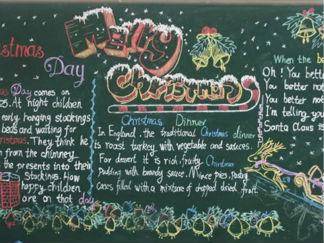 Merry
Christmas
Christmas
Day
mas Day comes on
25. At night children
early hanging stockings
beds and waiting for
ristmas. They think he
from the chimney
the presents into their
Stockings. How
happy children
are on that day
Christmas Dinner
In England, the traditional Christmas dinner
is roast turkey with vegetable and sauces.
For desert it is rich, fruity Christmas
Pudding with brandy sauce. Mince pies, pastry
cases filled with a mixture of chopped dried fruit.
When the be
Oh! You bette
You better no
You better not
I'm telling you
Santa Claus is